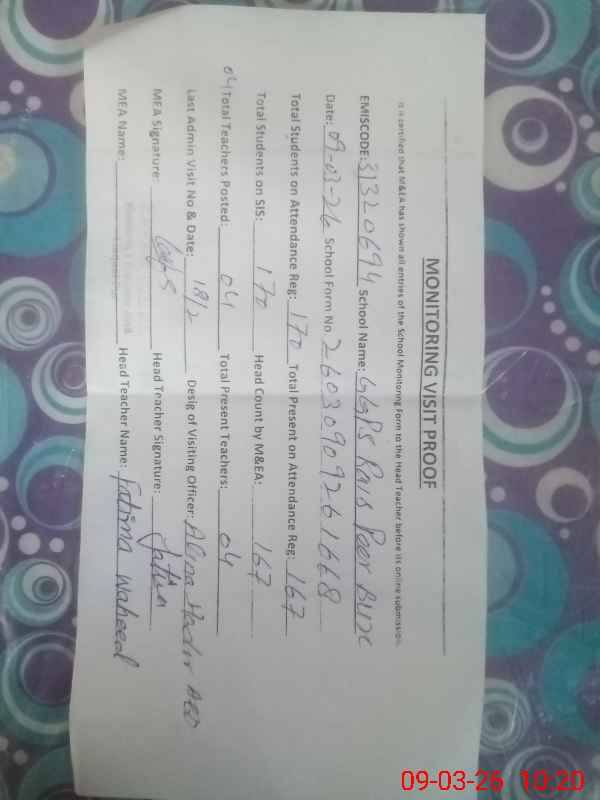 MONITORING VISIT PROOF
It is certified that M&EA has shown all entries of the School Monitoring Form to the Head Teacher before its online submission.
EMISCODE: 31320694 School Name: GGPS Rais Peer BUX
Date: 09-03-26 School Form No. 26030909261668
Total Students on Attendance Reg: 170 Total Present on Attendance Reg: 167
Total Students on SIS: 170 Head Count by M&EA: 167
04 Total Teachers Posted: 04 Total Present Teachers: 04
Last Admin Visit No & Date: 18/2 Desig of Visiting Officer: Alina AEO
MEA Signature: Head Teacher Signature: Fatima
MEA Name: Head Teacher Name: Fatima Waheed
09-03-26 10:20